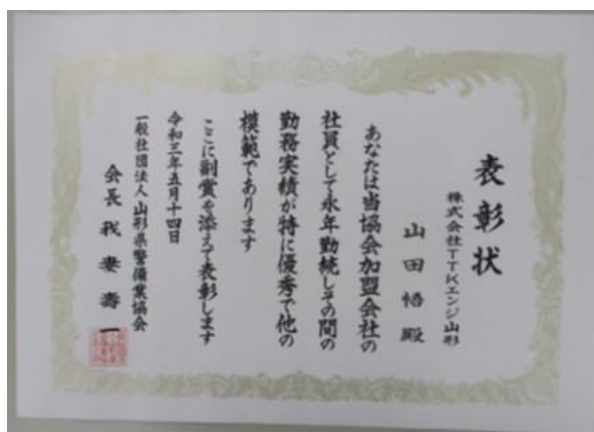 表彰状
株式会社TTKエンジ山形
山田悟殿
あなたは当協会加盟会社の
社員として永年勤続しその間の
勤務実績が特に優秀で他の
模範であります
ここに副賞を添えて表彰します
令和三年五月十四日
一般社団法人山形県警備業協会
会長我妻壽一